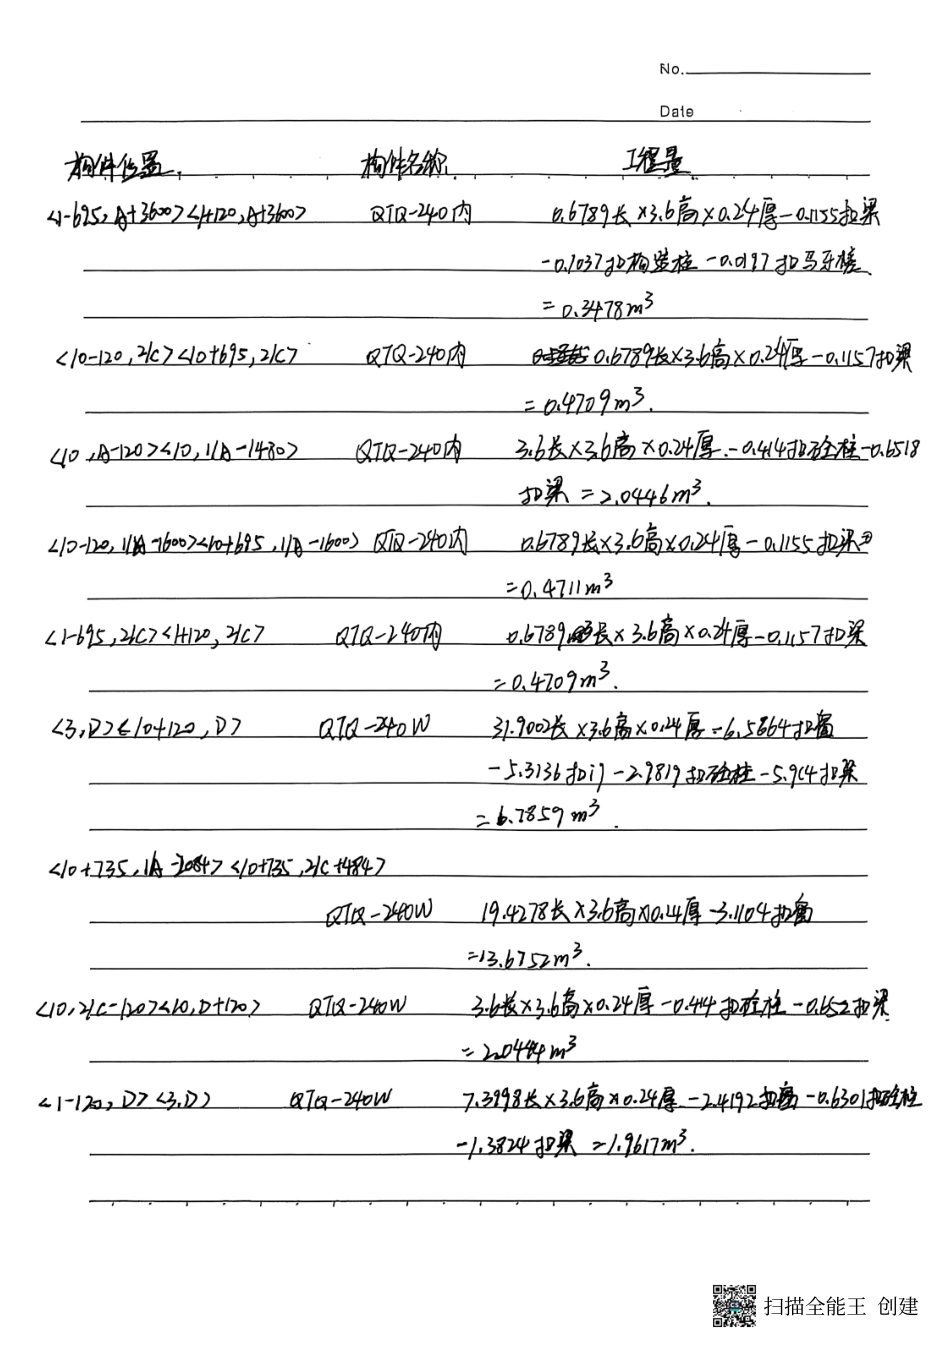 No.
Date
构件位置 构件名称 工程量
<1-695,A+3600><1+120,A+3600> QTQ-240内 0.6789长×3.6高×0.24厚-0.1155扣梁
-0.1037扣构造柱-0.0197扣马牙槎
=0.3478m³
<10-120,2/C><10+695,2/C> QTQ-240内 0.6789长×3.6高×0.24厚-0.1157扣梁
=0.4709m³.
<10,A-120><10,1/A-1480> QTQ-240内 3.6长×3.6高×0.24厚-0.414扣砼柱-0.6518
扣梁=2.0446m³.
<10-120,1/A-1600><10+695,1/A-1600> QTQ-240内 0.6789长×3.6高×0.24厚-0.1155扣梁
=0.4711m³
<1-695,2/C><1+120,2/C> QTQ-240内 0.6789长×3.6高×0.24厚-0.1157扣梁
=0.4709m³.
<3,D><10+120,D> QTQ-240W 31.9002长×3.6高×0.24厚-6.5664扣窗
-5.3136扣门-2.9819扣砼柱-5.914扣梁
=6.7859m³.
<10+735,1/A-2084><10+735,2/C+484>
QTQ-240W 19.4278长×3.6高×0.24厚-3.1104扣窗
=13.6752m³.
<10,2/C-120><10,D+120> QTQ-240W 3.6长×3.6高×0.24厚-0.414扣砼柱-0.652扣梁.
=2.0444m³
<1-120,D><3,D> QTQ-240W 7.3998长×3.6高×0.24厚-2.4192扣窗-0.6301扣砼柱
-1.3824扣梁=1.9617m³.
扫描全能王 创建